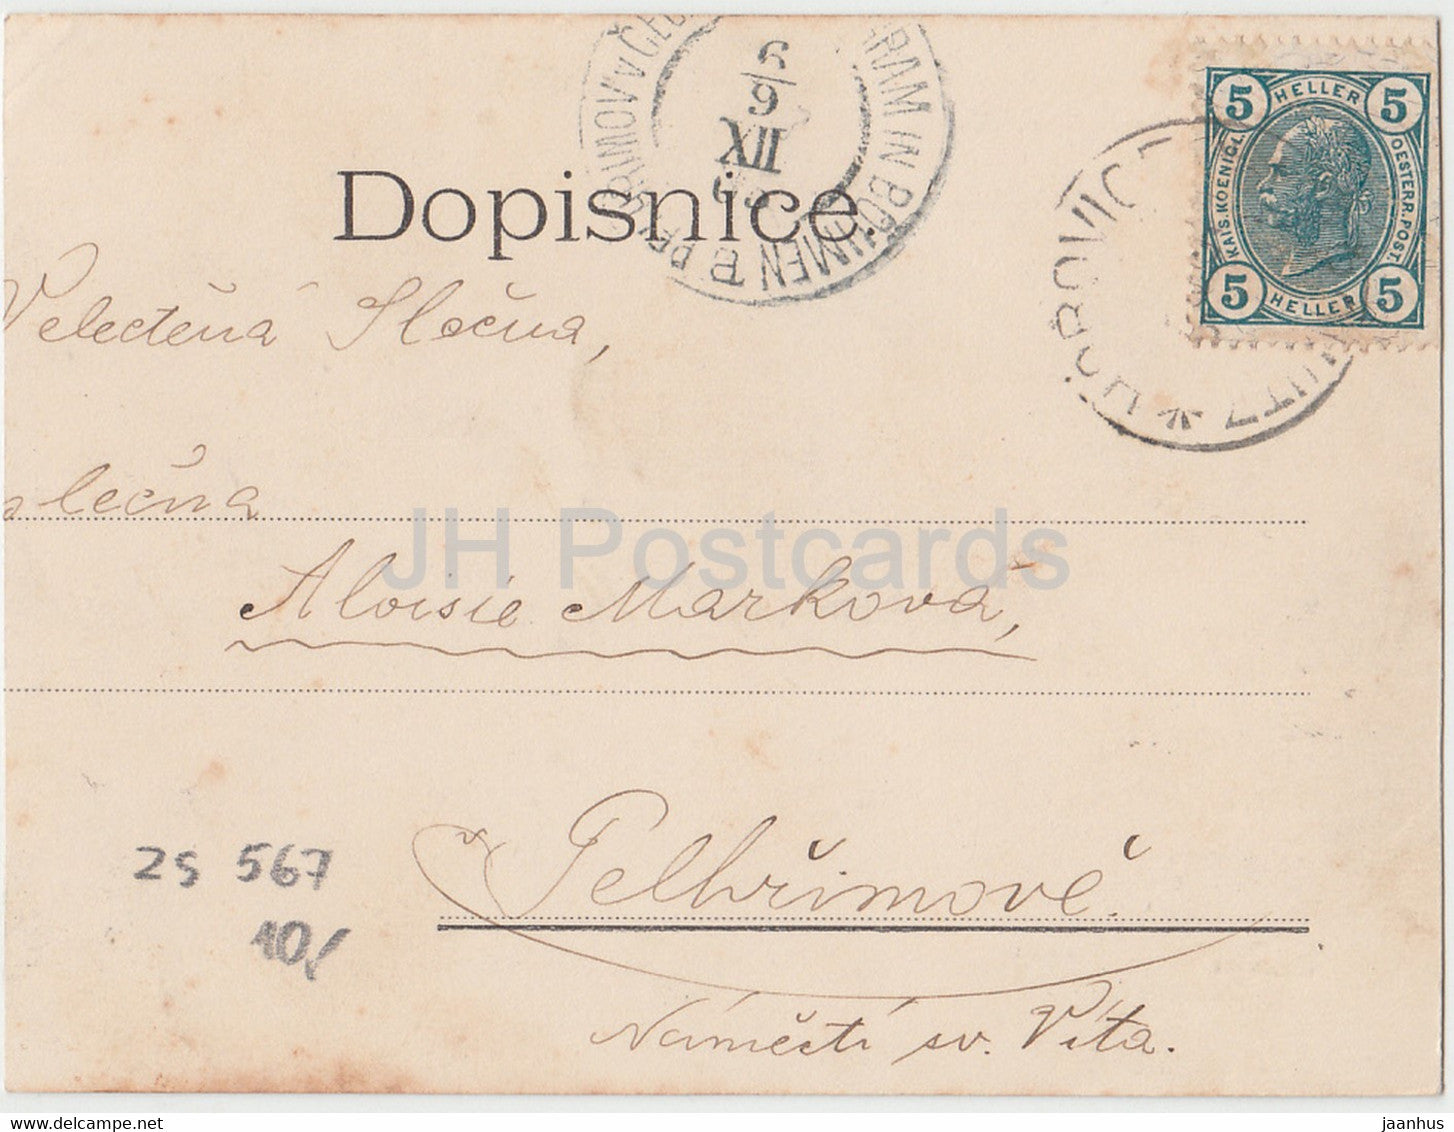 PELHŘIMOV V ČECH
PILGRAM IN BÖHMEN
6/9
XII
5 HELLER 5
KAIS. KOENIGL.
OESTERR. POST.
5 HELLER 5
Dopisnice.
Velectěná Slečna,
slečna
Aloisie Marková,
Pelhřimově.
Náměstí sv. Víta.
25 567
10,-
JH Postcards
delcampe.net
jaanhus